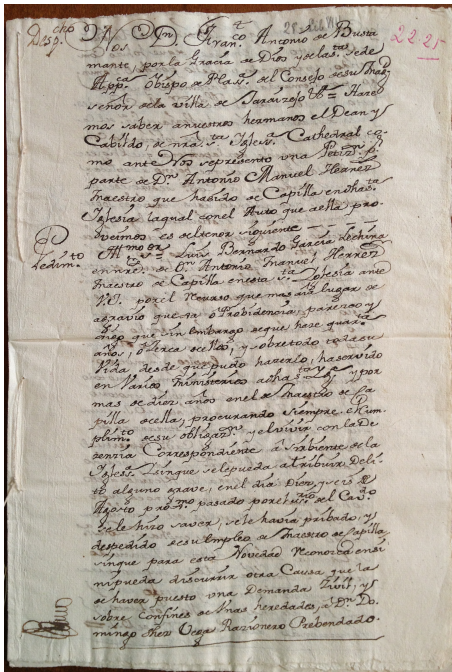 Desp.cho
22-25
Nos Dn. Fran.co Antonio de Busta
mante, por la Gracia de Dios y de la S.ta Sede
App.ca Obispo de Plas.a del Consejo de su Mag.
señor de la villa de Jaraizejo &.a = Hace
mos saver a nuestros hermanos el Dean y
Cabildo, de nrâ S.ta Igles.a Cathedral co
mo ante Nos se presento vna Petiz.n p.r
parte de D.n Antonio Manuel Herrez
Maestro que ha sido de Capilla en dha S.ta
Iglesia la qual con el Auto que a ella pro
veimos es del tenor siguiente
Pedim.to
Ill.mo S.or Luis Bernardo Garcia Lechina
en nre de D.n Antonio Manuel Herrez
Maestro de Capilla en esta S.ta Iglesia ante
V.I. por el Recurso que mas aia lugar de
agravio que na o Probidencia, parezco y
digo que sin embargo de que hace quar.ta
años, o cerca de ellos, y sobre todo toda su
Vida desde que pudo hazerlo, ha servido
en varios Ministerios a dha S.ta Igl.a y por
mas de diez años en el de Maestro de Ca
pilla de ella, procurando siempre el Cum
plim.to de su obligaz.n y el vivir con la De
zenzia Correspondiente a sirbiente de la
Igles.a sin que se le pueda atribuir Deli
to alguno grave, en el dia Diez y seis de
Agosto prox.mo pasado por el del Cav.do
se le hizo saver, se le havia pribado, y
despedido de su empleo de Maestro de Capilla
sin que para esta Novedad reconozca en si
ni pueda discurrir otra Causa que la
de haver puesto vna Demanda Zivil, y
sobre Confines de vnas heredades, a D.n Do
mingo Vega Razionero Prebendado.